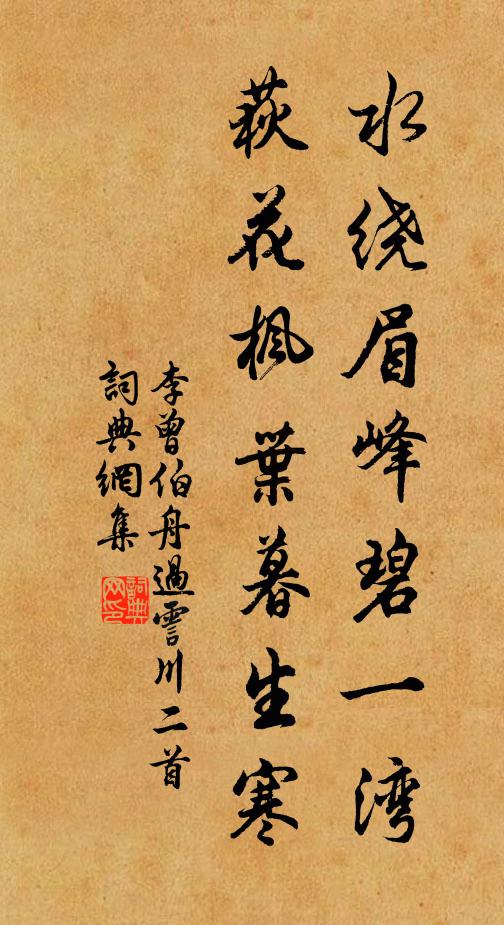 水绕眉峰碧一湾
萩花枫葉暮生寒
李曾伯舟過霅川二首
詞典網集
詞典網印